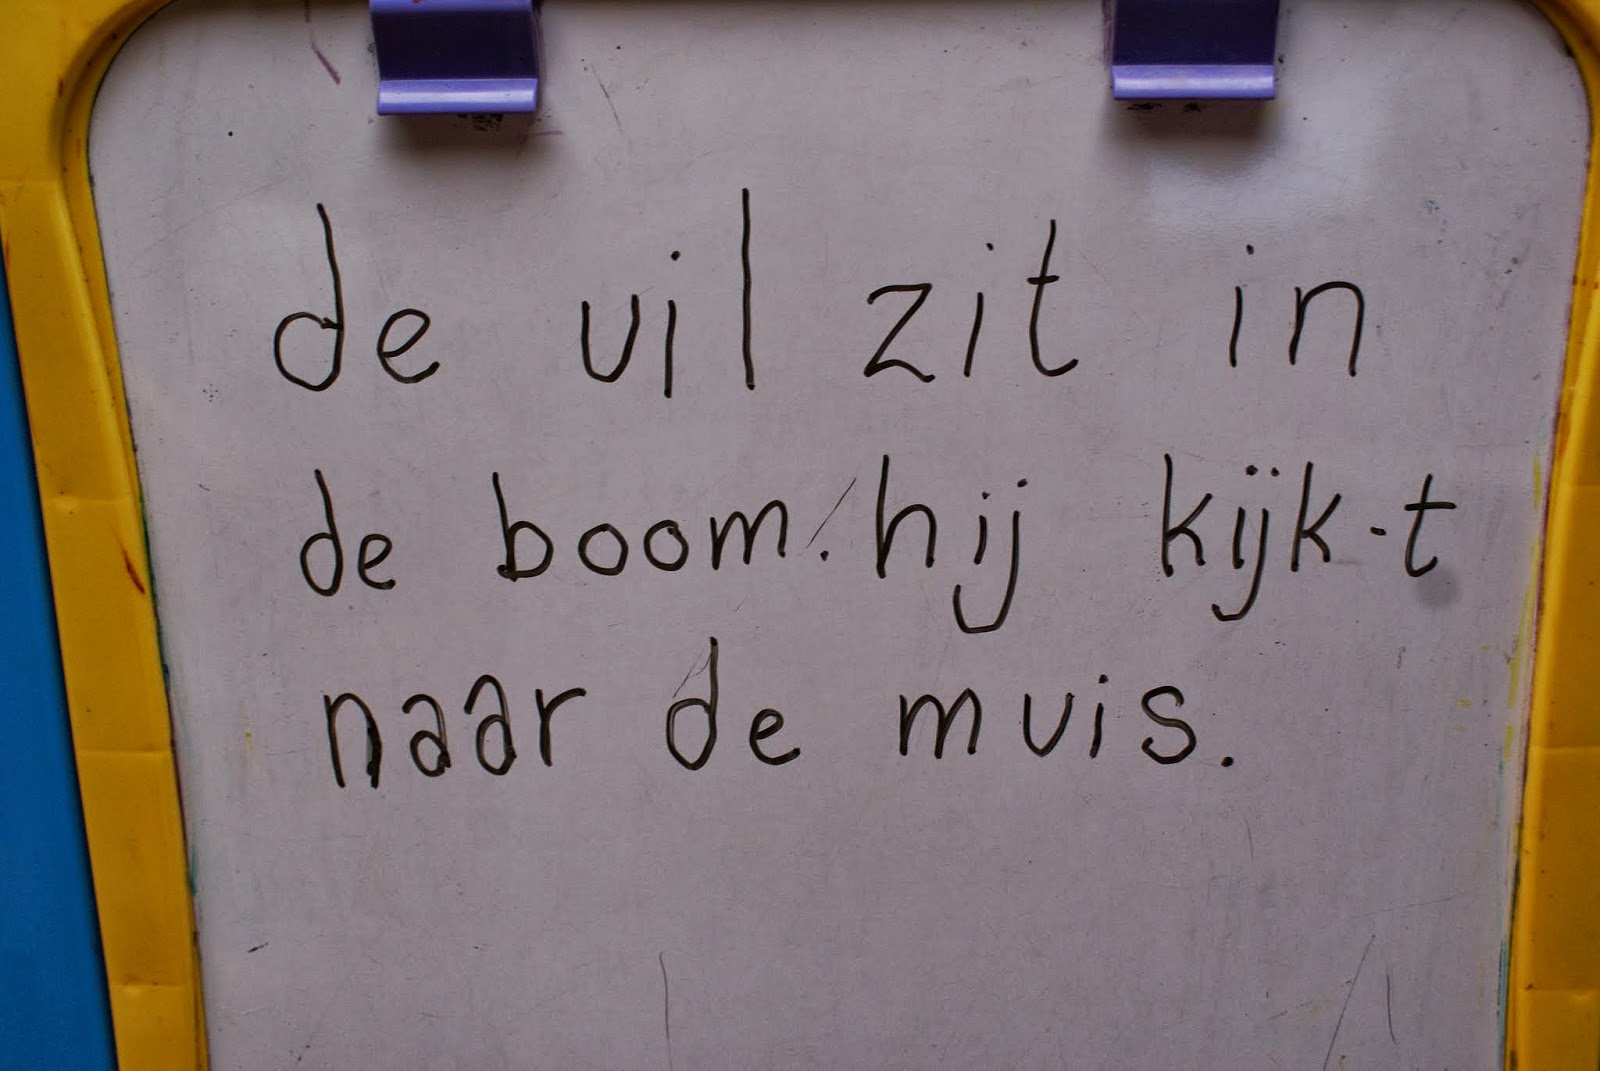 de uil zit in
de boom. hij kijk-t
naar de muis.